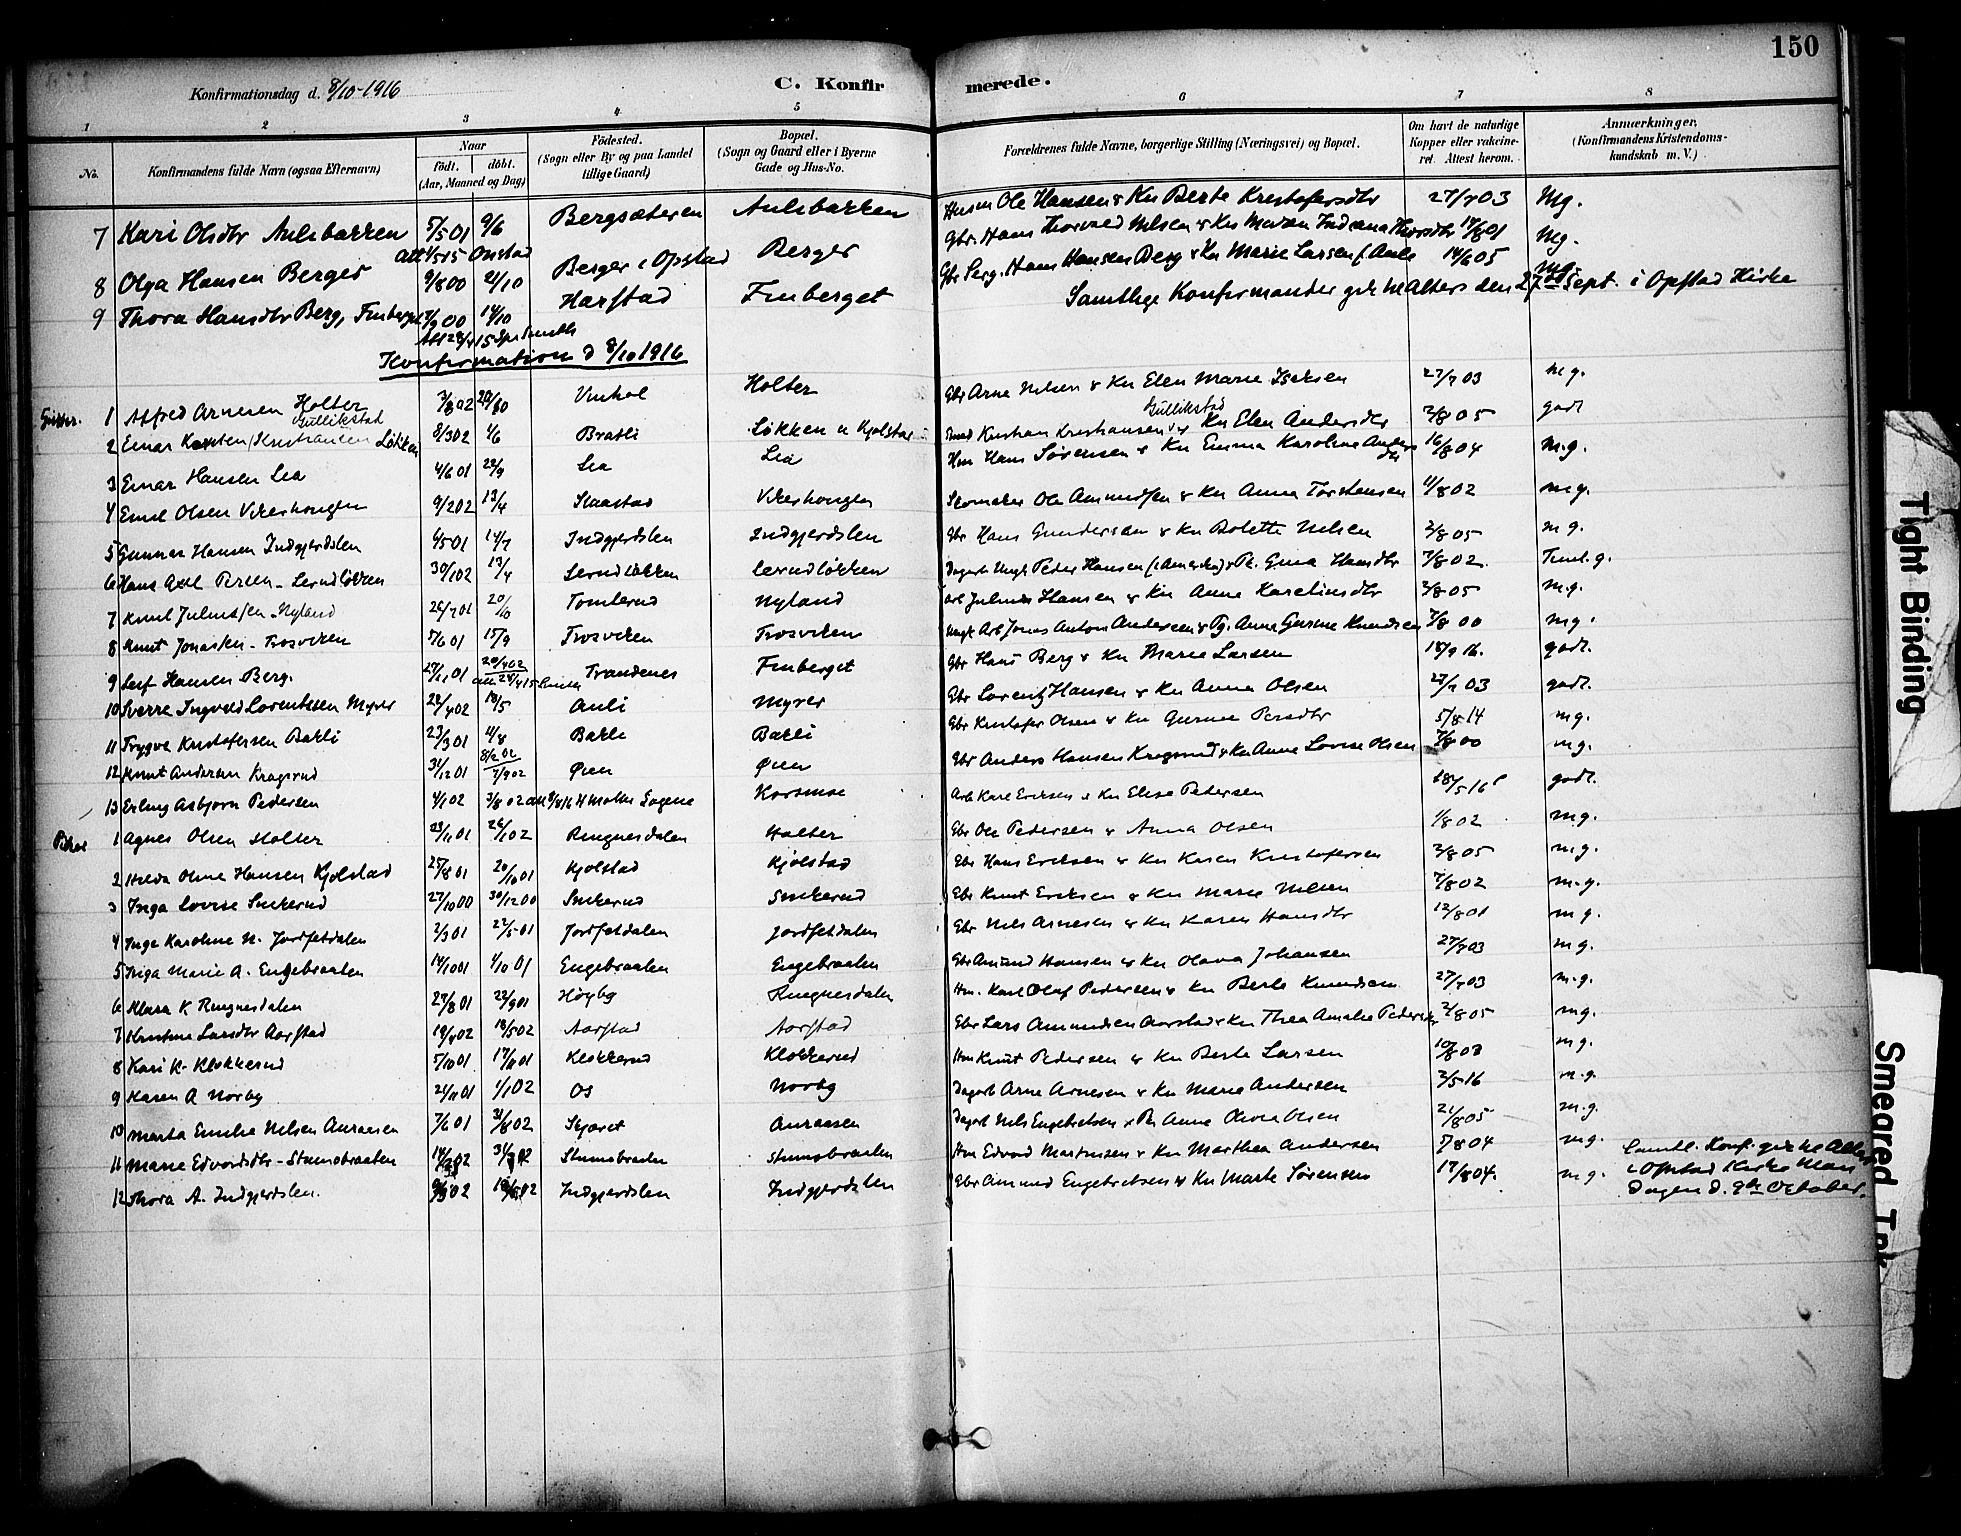 150
Konfirmationsdag d. 8/10-1916
C. Konfirmerede.
1 2 3 4 5 6 7 8
No.
Konfirmandens fulde Navn (ogsaa Efternavn)
Naar
födt. döbt.
(Aar, Maaned og Dag)
Födested.
(Sogn eller By og paa Landet
tillige Gaard)
Bopæl.
(Sogn og Gaard eller i Byerne
Gade og Hus-No.
Forældrenes fulde Navne, borgerlige Stilling (Næringsvei) og Bopæl.
Om havt de naturlige
Kopper eller vakcine-
ret. Attest herom.
Anmærkninger.
(Konfirmandens Kristendoms-
kundskab m. V.)
7 Kari Olsdtr Aulibakken 5/5 01 9/6 Bergsæteren Aulibakken Husm Ole Hansen & Kn Berte Kristofersdtr 27/7 03 Mg.
8 Olga Hansen Berger 9/8 00 21/10 Berger i Opstad Berger Gbr. Hans Thorvald Nilsen & Kn Maren 17/8 01 Mg.
9 Thora Hansdtr Berg, Finberget 14/10 Harstad Finberget Serg. Hans Hansen Berg & Kn Marie Larsen 14/6 05 mg.
Samtlige Konfirmander gik til Alters den 27de Sept. i Opstad Kirke
Konfirmation d 8/10 1916
Gutter. 1 Alfred Arnesen Holter 3/8 02 Vinhol Holter Gbr Arne Nilsen & Kn Elen Marie Isaksen 27/7 03 m.g.
Gullikstad Gullikstad
2 Einar Karsten Kristiansen Løkken 8/3 02 1/6 Braten Løkken u Kjolstad Kristian Kristiansen & Kn Elen Andersdtr 2/8 05 godt
3 Einar Hansen Lea 4/6 01 29/9 Lea Lea Hm Hans Sørensen & Kn Emma Karoline Andersdtr 16/8 04 m.g.
4 Emil Olsen Vikerhougen 9/2 02 13/4 Skaastad Vikerhougen Skomaker Ole Amundsen & Kn Anna Torstensen 11/8 02 m.g.
5 Gunnar Hansen Indgjerdslen 6/5 01 14/7 Indgjerdslen Indgjerdslen Gbr Hans Gundersen & Kn Bolette Nilsen 2/8 05 m g.
6 Hans Axel Persen - Lerudløkken 30/1 02 13/4 Lerudløkken Lerudløkken Dagarb Ungk Peder Hansen (i Amerika) & Pk. Gina Hansdtr 7/8 02 Teml.g.
7 Knut Juliussen - Nyland 26/7 01 20/10 Tomterud Nyland Arb Julius Hansen & Kn Anne Karelinsdtr 2/8 05 m.g.
8 Knut Jonassen - Trosviken 5/6 01 15/9 Trosviken Trosviken Ungk Arb Jonas Anton Andersen & Pg. Anna Gurine Knudsen 7/8 00 mg.
9 Leif Hansen Berg. 27/11 01 20/4 02 Trandenes Finberget Gbr Hans Berg & Kn Marie Larsen 18/9 16. godt.
10 Sverre Ingvald Lorentzsen Myrer 28/4 02 18/5 Auli Myrer Gbr Lorentz Hansen & Kn Anna Olsen 27/7 03 godt.
11 Trygve Kristofersen Bakli 23/3 01 4/8 Bakli Bakli Gbr Kristofer Olsen & Kn Gurine Persdtr 5/8 14 m.g.
12 Knut Andersen Kragsrud 31/12 01 Øien Øien Gbr Anders Hansen Kragsrud & Kn Anne Lovise Olsen 7/8 00 mg.
13 Erling Asbjørn Pedersen 4/1 02 3/8 02 Korsmoe Arb Karl Eriksen & Kn Elise Pedersen 18/5 16 godt.
Piker 1 Agnes Olsen Holter 23/11 01 26/1 02 Ringnesdalen Holter Gbr Ole Pedersen & Anna Olsen 1/8 02 m.g.
2 Hilda Oline Hansen Kjolstad 25/8 01 20/10 01 Kjolstad Kjolstad Gbr Hans Eriksen & Kn Karen Kristofersen 2/8 05 m.g.
3 Inga Lovise Smkerud 27/10 00 30/12 00 Smkerud Smkerud Gbr Knut Eriksen & Kn Marie Nilsen 7/8 02 m.g.
4 Inga Karoline N. Jordfetdalen 2/3 01 27/5 01 Jordfetdalen Jordfetdalen Gbr Nils Arnesen & Kn Karen Hansdtr 12/8 01 m.g.
5 Inga Marie A. Engebraaten 14/10 01 1/10 01 Engebraaten Engebraaten Gbr Amund Hansen & Kn Olava Johansen 27/7 03 m.g.
6 Klara K Ringnesdalen 27/8 01 22/9 01 Høyby Ringnesdalen Hm. Karl Olaf Pedersen & Kn Berte Knudsen 27/7 03 m.g.
7 Kristine Larsdtr Aarstad 19/4 02 18/5 02 Aarstad Aarstad Gbr Lars Amundsen Aarstad & Kn Thea Amalie Pedersen 2/8 05 mg.
8 Kari K. Klokkerud 5/10 01 17/11 01 Klokkerud Klokkerud Hm Knut Pedersen & Kn Berte Larsen 10/8 03 m.g.
9 Karen A Norby 21/11 01 1/1 02 Os Norby Dagarb Arne Arnesen & Kn Marie Andersen 2/5 16 m.g.
10 Marta Emilie Nilsen Auraasen 7/6 01 31/8 02 Skjæret Auraasen Dagarb Nils Engebretsen & Pk Anne Olivia Olsen 21/8 05 m.g.
11 Marie Edvardsdtr - Stumsbraaten Stumsbraaten Stumsbraaten Hm Edvard Martinsen & Kn Marthea Andersen 5/8 04 m.g.
12 Thora A. Indgjerdslen. Indgjerdslen Indgjerdslen Gbr Amund Engebretsen & Kn Marte Sørensen 17/8 04. m.g.
Samtl. Konf. gik til Alters
i Opstad Kirke Man
dagen d. 9de October.
Tight Binding
Smeared